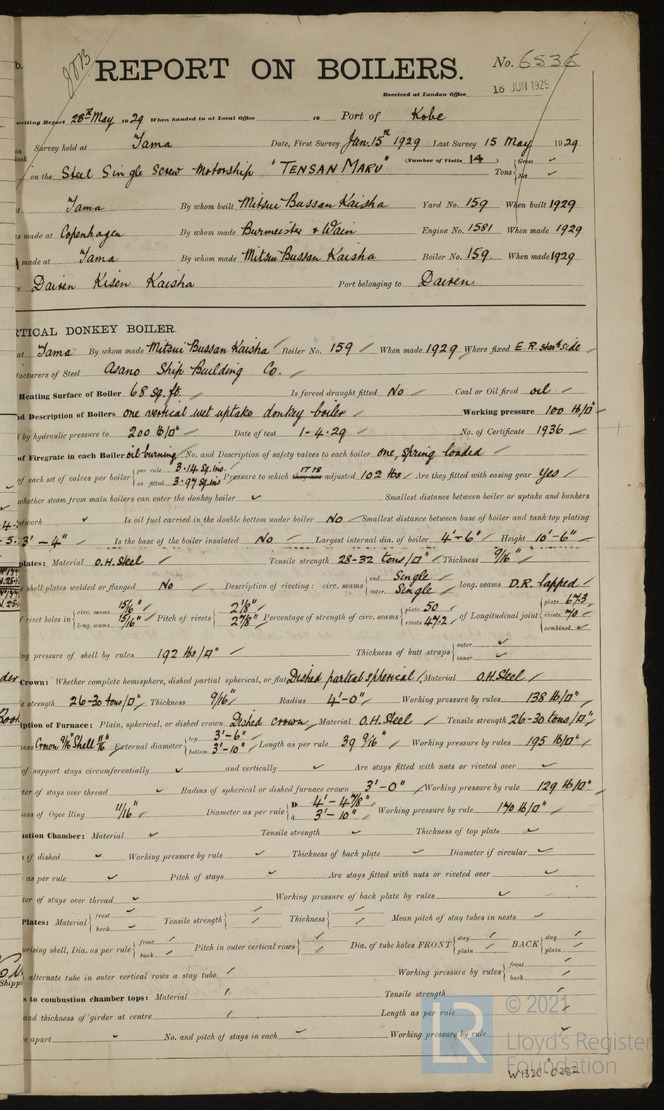 REPORT ON BOILERS.
No. 6536
Received at London Office
18 JUN 1929
writing Report 28th May 1929 When handed in at Local Office 19 Port of Kobe
Survey held at Tama Date, First Survey Jan. 15th 1929 Last Survey 15 May 1929
(Number of Visits 14) Gross
on the Steel Single Screw Motorship "TENSAN MARU" Tons Net
Tama By whom built Mitsui Bussan Kaisha Yard No. 159 When built 1929
made at Copenhagen By whom made Burmeister & Wain Engine No. 1581 When made 1929
made at Tama By whom made Mitsui Bussan Kaisha Boiler No. 159 When made 1929
Dairen Kisen Kaisha Port belonging to Dairen
RTICAL DONKEY BOILER.
at Tama By whom made Mitsui Bussan Kaisha Boiler No. 159 When made 1929 Where fixed E.R. Starb'd Side
facturers of Steel Asano Ship Building Co.
Heating Surface of Boiler 68 sq. ft. Is forced draught fitted No Coal or Oil fired oil
d Description of Boilers one vertical wet uptake donkey boiler Working pressure 100 lb/□"
by hydraulic pressure to 200 lb/□" Date of test 1-4-29 No. of Certificate 1936
of Firegrate in each Boiler oil burning No. and Description of safety valves to each boiler one, spring loaded
of each set of valves per boiler per rule 3.14 sq. ins. as fitted 3.97 sq. ins. Pressure to which they are IT IS adjusted 102 lbs Are they fitted with easing gear Yes
whether steam from main boilers can enter the donkey boiler ✓ Smallest distance between boiler or uptake and bunkers
dwork ✓ Is oil fuel carried in the double bottom under boiler No Smallest distance between base of boiler and tank top plating
3'-4" Is the base of the boiler insulated No Largest internal dia. of boiler 4'-6" Height 10'-6"
plates: Material O.H. Steel Tensile strength 28-32 tons/□" Thickness 9/16"
shell plates welded or flanged No Description of riveting: circ. seams end Single inter. Single long. seams D.R. lapped
rivet holes in circ. seams 15/16" long. seams 15/16" Pitch of rivets 2 1/8" 2 7/8" Percentage of strength of circ. seams plate 50 rivets 47.2 of Longitudinal joint plate 67.3 rivets 70 combined ✓
ng pressure of shell by rules 192 lbs/□" Thickness of butt straps outer ✓ inner ✓
Crown: Whether complete hemisphere, dished partial spherical, or flat Dished partial spherical Material O.H. Steel
strength 26-30 tons/□" Thickness 9/16" Radius 4'-0" Working pressure by rules 138 lb/□"
iption of Furnace: Plain, spherical, or dished crown Dished crown Material O.H. Steel Tensile strength 26-30 tons/□"
Crown 9/16" Shell External diameter top 3'-6" bottom 3'-10" Length as per rule 39 9/16" Working pressure by rules 195 lb/□"
of support stays circumferentially ✓ and vertically ✓ Are stays fitted with nuts or riveted over ✓
ter of stays over thread ✓ Radius of spherical or dished furnace crown 3'-0" Working pressure by rule 129 lb/□"
ess of Ogee Ring 11/16" Diameter as per rule D 4'-4 7/8" d 3'-10" Working pressure by rule 170 lb/□"
ustion Chamber: Material ✓ Tensile strength ✓ Thickness of top plate ✓
if dished ✓ Working pressure by rule ✓ Thickness of back plate ✓ Diameter if circular ✓
as per rule ✓ Pitch of stays ✓ Are stays fitted with nuts or riveted over ✓
ter of stays over thread ✓ Working pressure of back plate by rules ✓
Plates: Material front back Tensile strength Thickness Mean pitch of stay tubes in nests ✓
prising shell, Dia. as per rule front back Pitch in outer vertical rows Dia. of tube holes FRONT stay plain BACK stay plain
alternate tube in outer vertical rows a stay tube Working pressure by rules front back
s to combustion chamber tops: Material Tensile strength
and thickness of girder at centre Length as per rule
apart ✓ No. and pitch of stays in each ✓ Working pressure by rule ✓
LR
© 2021
Lloyd's Register
Foundation
W1320-0282